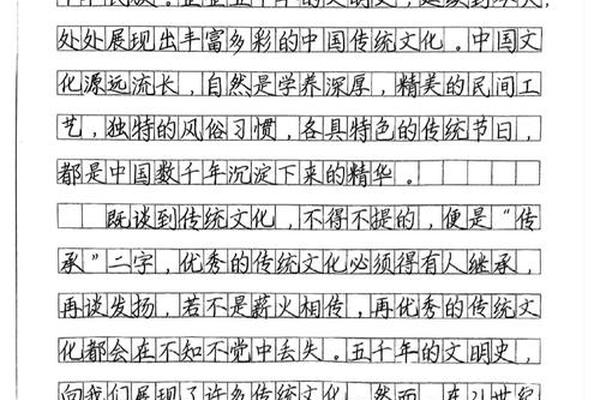 民族。五千年的文明史，延续到今天，
处处展现出丰富多彩的中国传统文化。中国文
化源远流长，自然是学养深厚，精美的民间工
艺，独特的风俗习惯，各具特色的传统节日，
都是中国数千年沉淀下来的精华。
既谈到传统文化，不得不提的，便是“传
承”二字，优秀的传统文化必须得有人继承，
再谈发扬，若不是薪火相传，再优秀的传统文
化都会在不知不觉中丢失。五千年的文明史，
向我们展现了许多传统文化。然而，在21世纪